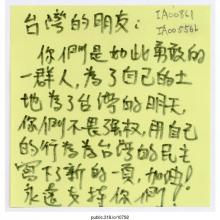 台灣的朋友：
IA00861
IA00556b
你們是如此勇敢的
一群人，為了自己的土
地為了台灣的明天，
你們不畏強權，用自己
的行為為台灣的民主
寫下新的一頁，加油！
永遠支持你們！
public.318.io/10798